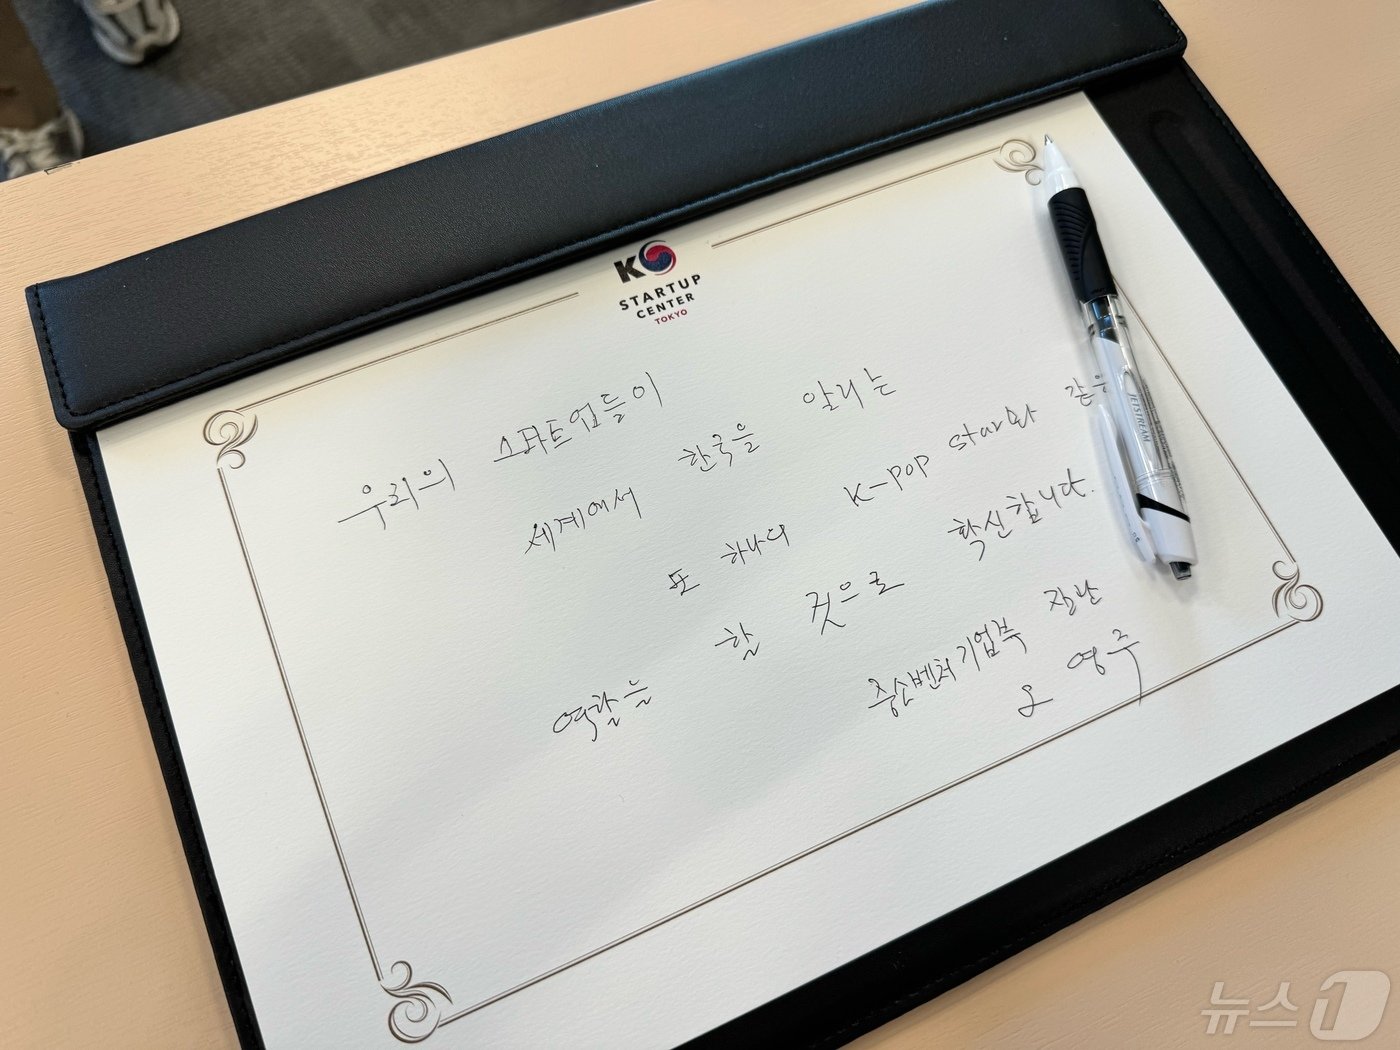 K
STARTUP
CENTER
TOKYO
우리의 스타트업들이
세계에서 한국을 알리는
또 하나의 K-POP star와 같은
역할을 할 것으로 확신합니다.
중소벤처기업부 장관
오영주
JETSTREAM
뉴스1